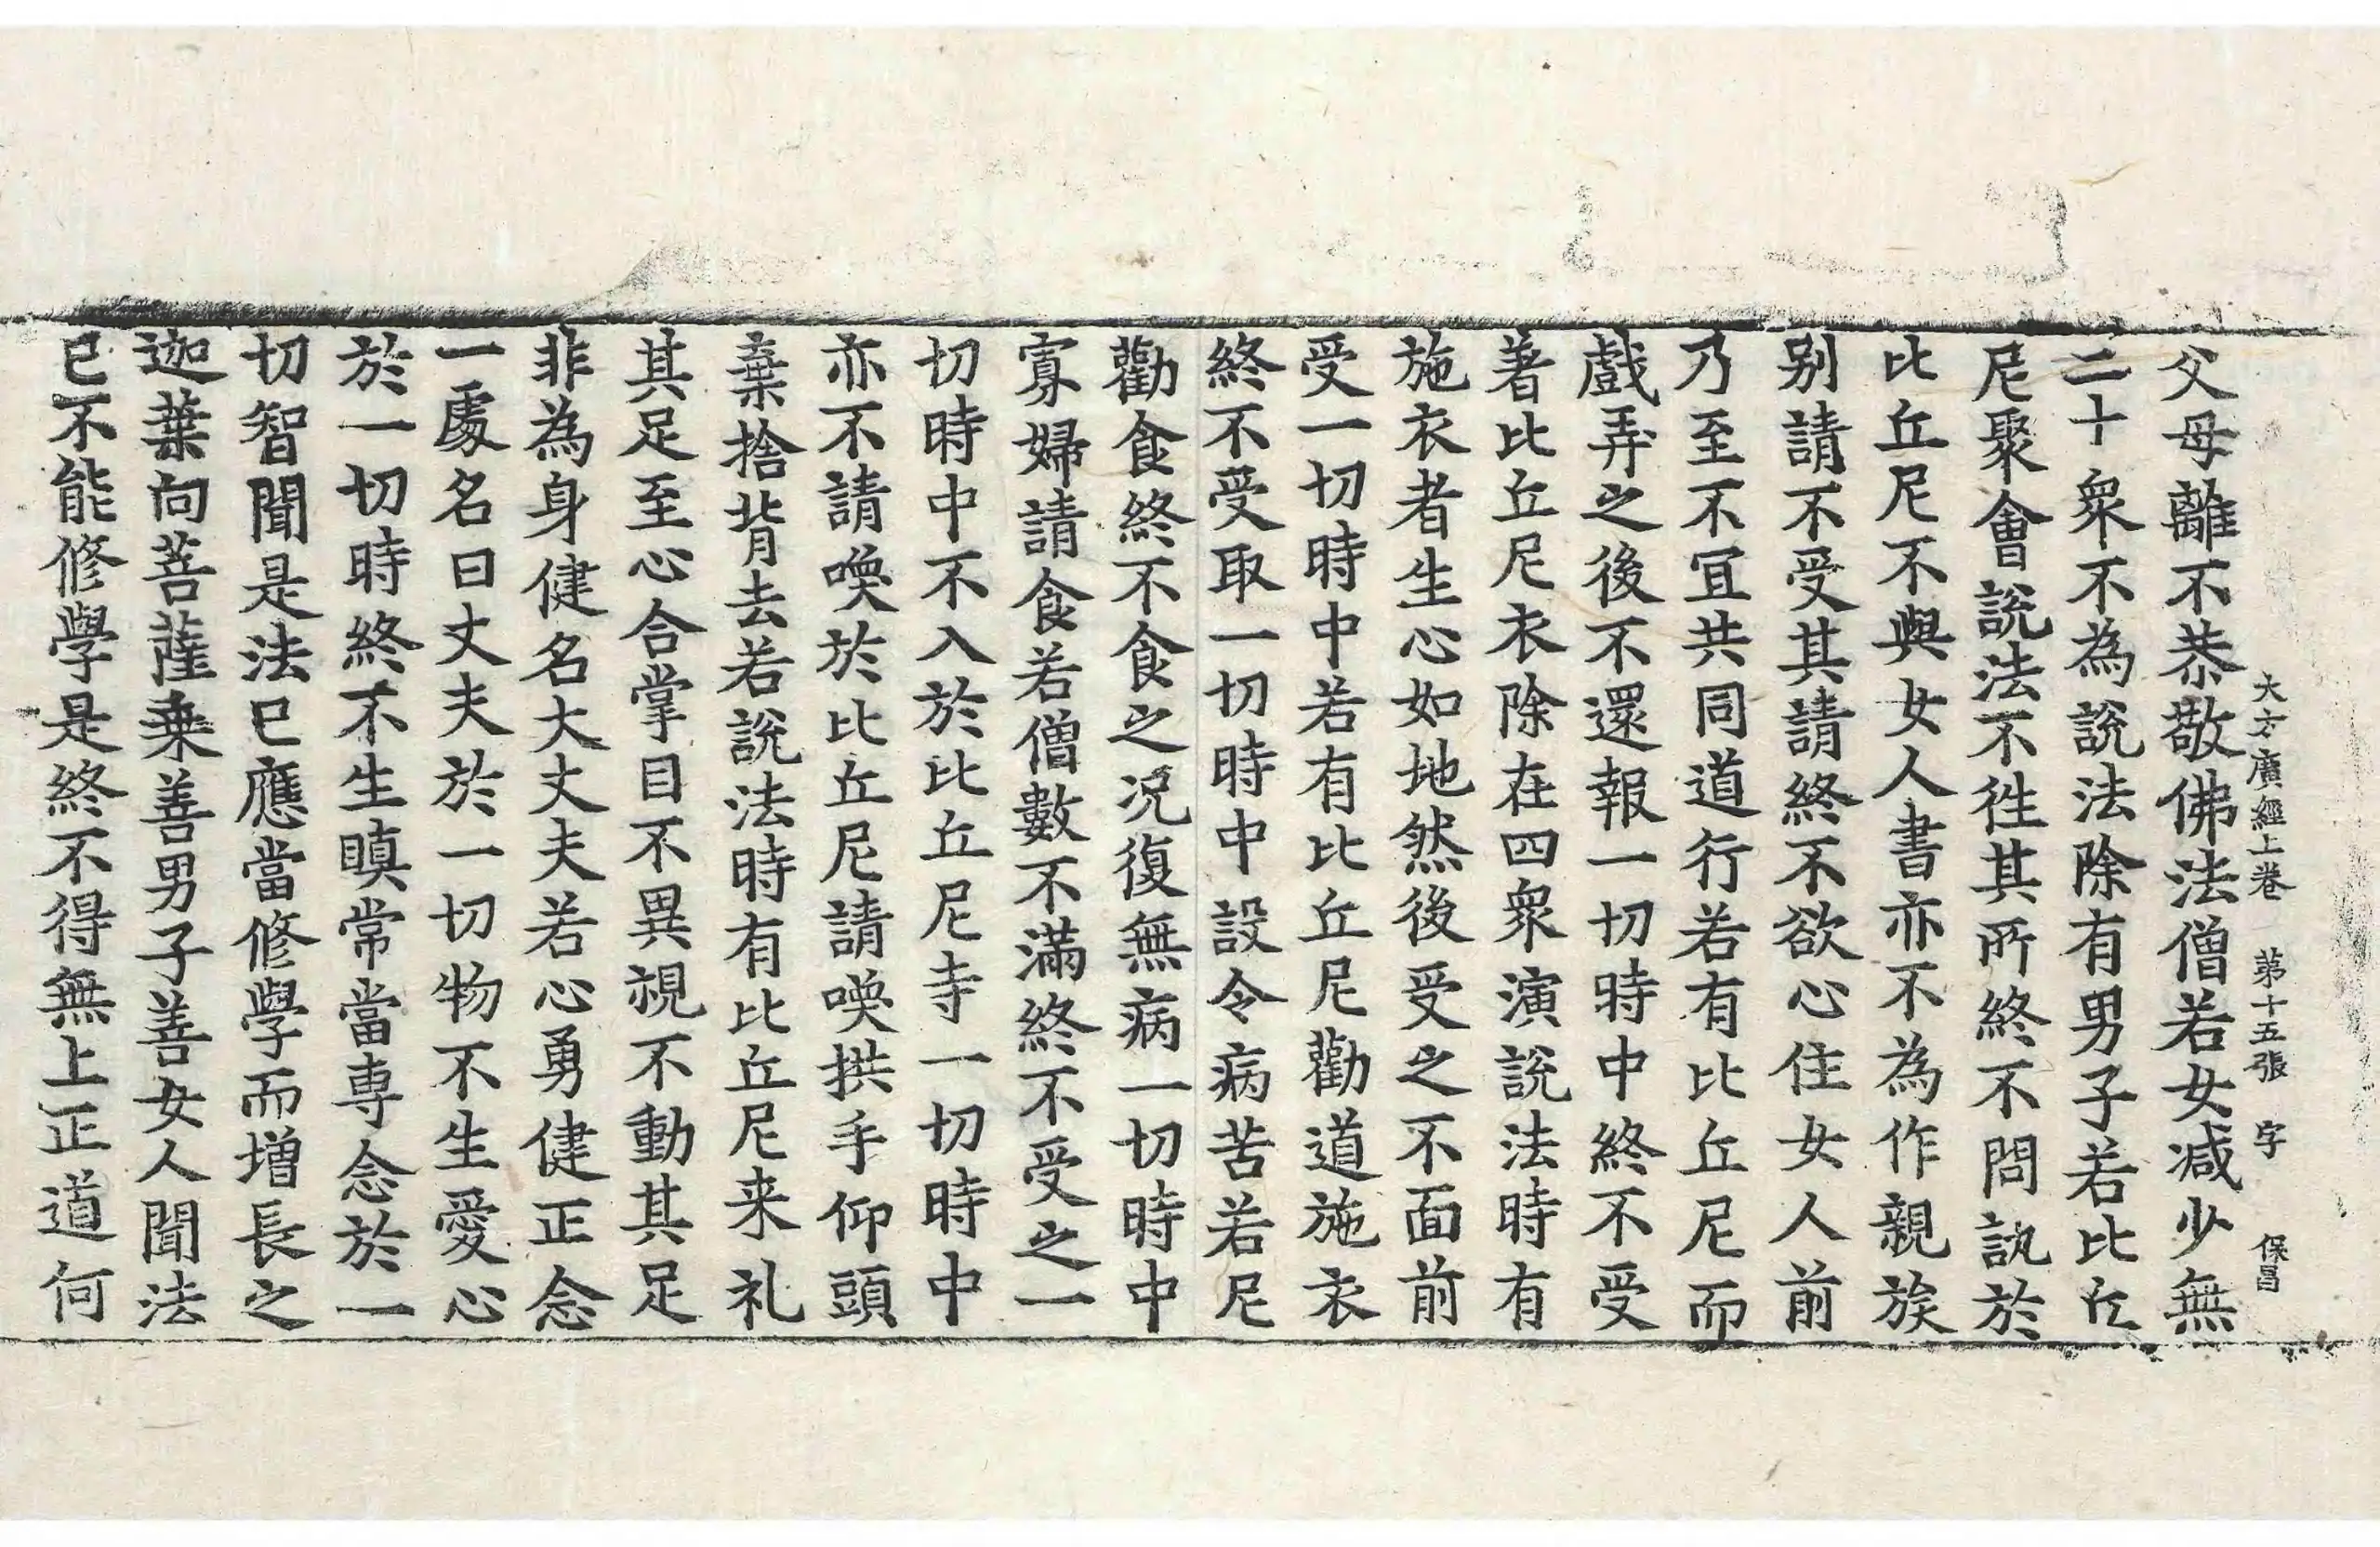 大方廣經上卷 第十五張 字 保昌
父母離不恭敬佛法僧若女减少無
二十衆不為說法除有男子若比丘
尼聚會說法不徃其所終不問訊於
比丘尼不與女人書亦不為作親族
别請不受其請終不欲心住女人前
乃至不冝共同道行若有比丘尼而
戲弄之後不還報一切時中終不受
著比丘尼衣除在四衆演說法時有
施衣者生心如地然後受之不面前
受一切時中若有比丘尼勸道施衣
終不受取一切時中設令病苦若尼
勸食終不食之况復無病一切時中
寡婦請食若僧數不滿終不受之一
切時中不入於比丘尼寺一切時中
亦不請喚於比丘尼請喚拱手仰頭
棄捨背去若說法時有比丘尼来礼
其足至心合掌目不異視不動其足
非為身健名大丈夫若心勇健正念
一處名曰丈夫於一切物不生愛心
於一切時終不生瞋常當專念於一
切智聞是法已應當修學而增長之
迦葉向菩薩乗善男子善女人聞法
已不能修學是終不得無上正道何